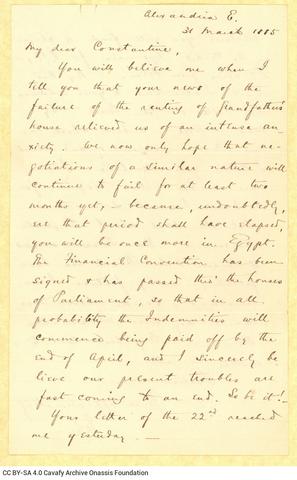 Alexandria E.
31 March 1885
My dear Constantine,
You will believe me when I
tell you that your news of the
failure of the renting of Grandfather's
house relieved us of an intense an-
xiety. We now only hope that ne-
gotiations of a similar nature will
continue to fail for at least two
months yet, - because, undoubtedly,
ere that period shall have elapsed,
you will be once more in Egypt.
The Financial Convention has been
signed & has passed thro' the houses
of Parliament, so that in all
probability the Indemnities will
commence being paid off by the
end of April, and I sincerely be
lieve our present troubles are
fast coming to an end. So be it! -
Your letter of the 22nd reached
me yesterday -
CC BY-SA 4.0 Cavafy Archive Onassis Foundation